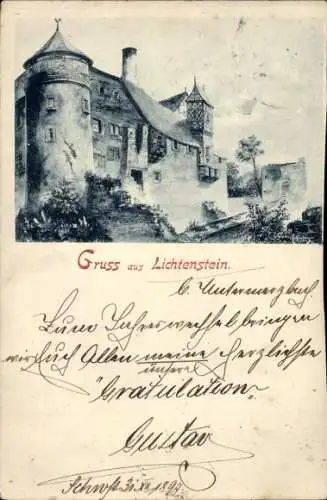 Gruss aus Lichtenstein.
b. Untermerzbach
Zum Jahreswechsel bringen
wir Euch Allen meine herzlichste
unsere
"Gratulation"
Gustav
1899